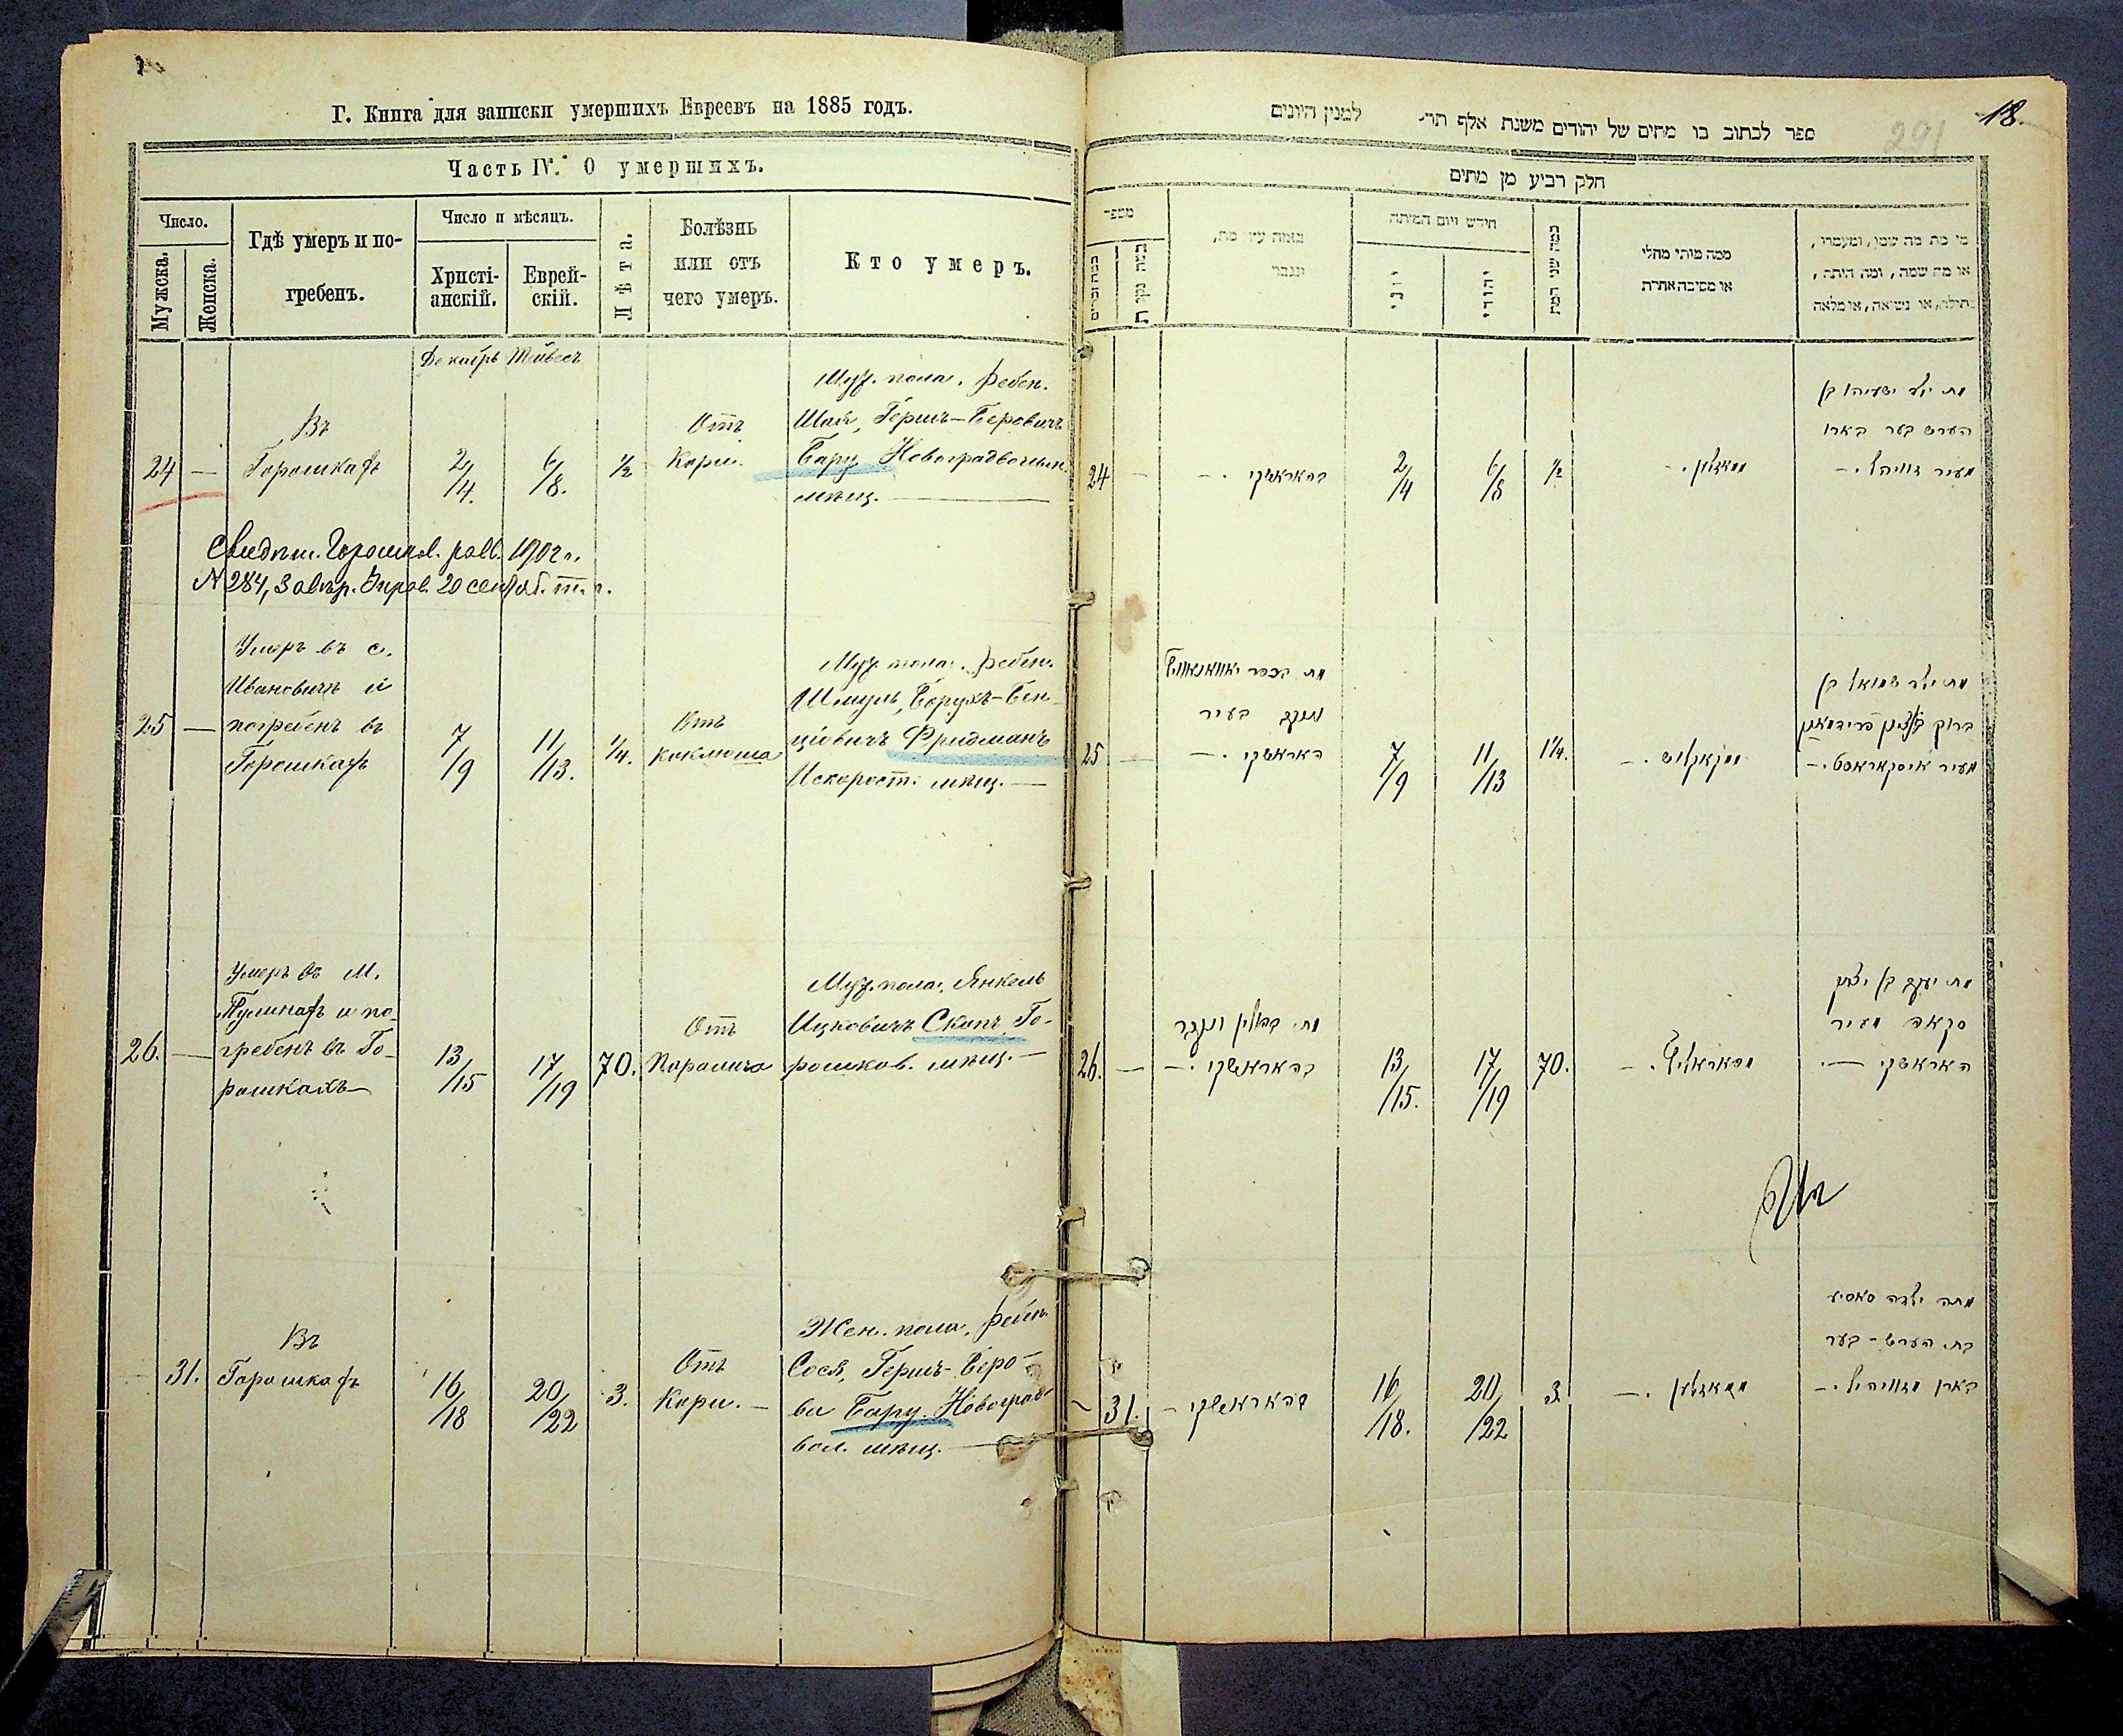 Г. Книга для записки умершихъ Евреевъ на 1885 годъ.
Часть IV. О умершихъ.
Число.
Мужска.
Женска.
Гдѣ умеръ и по-
гребенъ.
Число и мѣсяцъ.
Христі-
анскій.
Еврей-
скій.
Лѣта.
Болѣзнь
или отъ
чего умеръ.
Кто умеръ.
Декабрь Тейвесъ
24 —
Въ
Горошкахъ
2/4.
6/8.
1/2
Отъ
Кори.
Муж. пола. ребен.
Шая, Гершъ-Беровичъ
Бару Новоградволын.
мѣщ. —
Свидѣт. Горошков. равв. 1902 г.
N 284, Завѣр. Управ. 20 сентяб. т. г.
25 —
Умеръ въ с.
Ивановичъ и
погребенъ въ
Горошкахъ
7/9
11/13.
1/4.
Отъ
коклюша
Муж. пола. ребен.
Шмуль, Борухъ-Бен-
ціовичъ Фридманъ
Искорост. мѣщ. —
26. —
Умеръ въ М.
и по-
гребенъ въ Го-
рошкахъ
13/15
17/19
70.
Отъ
Паралича
Муж. пола, Янкель
Ицковичъ Скапъ Го-
рошков. мѣщ. —
31.
Въ
Горошкахъ
16/18
20/22
3.
Отъ
Кори. —
Жен. пола, ребен.
Сося, Гершъ-Беро-
ва Бару Новоград
вол. мѣщ. —
18.
291
ספר לכתוב בו מתים של יהודים משנת אלף תר׳ למנין היונים
חלק רביע מן מתים
מספר
כמה זכרים
כמה נקיבות
באיזה עיר מת,
ונקבר
חודש ויום המיתה
יוני
יהודי
כמה שני המת
ממה מותו מחלי
או מסיבה אחרת
מי מת מה שמו, ומעמדו,
או מה שמה, ומה היתה,
בתולה, או נשואה, או מלאה
24 —
בהאראשקי —
2/4
6/8
1/2
מאזלען —
מת ילד ישעיהו בן
הערש בער בארו
מעיר זוויהל —
25 —
מת בכפר יאוואנאוויץ
ונקבר בעיר
האראשקי —
7/9
11/13
1/4.
מקאקלוש —
מת ילד שמואל בן
ברוך בענציון פרידמאן
מעיר איסקאראסט —
26. —
מת ונקבר
בהאראשקי —
13/15.
17/19
70.
מפאראליץ —
מת יעקב בן יצחק
סקאפ מעיר
האראשקי —
31.
בהאראשקי —
16/18.
20/22
3.
מאזלען —
מתה ילדה סאסיע
בת הערש-בער
בארו מזוויהיל —